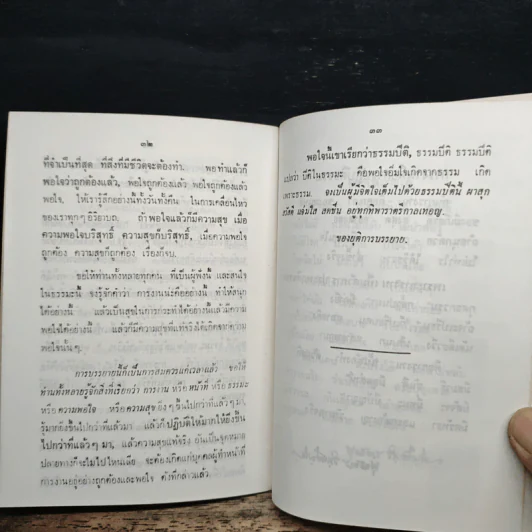 ๓๒
ที่จำเป็นที่สุด ที่สิ่งที่มีชีวิตจะต้องทำ. พอทำแล้วก็
พอใจว่าถูกต้องแล้ว, พอใจถูกต้องแล้ว พอใจถูกต้องแล้ว
พอใจ, ให้เรารู้สึกอย่างนี้ทั้งวันทั้งคืน ในการเคลื่อนไหว
ของเราทุก ๆ อิริยาบถ. ถ้าพอใจแล้วก็มีความสุข เมื่อ
ความพอใจบริสุทธิ์ ความสุขก็บริสุทธิ์, เมื่อความพอใจ
ถูกต้อง ความสุขก็ถูกต้อง เรื่องก็จบ.
ขอให้ท่านทั้งหลายทุกคน ที่เป็นผู้ฟังนี้ และสนใจ
ในธรรมะนี้ จงรู้จักคำว่า การงานนะคืออย่างนี้ ทำให้สนุก
ได้อย่างนี้ แล้วเป็นสุขในการกระทำได้อย่างนี้แล้วมีความ
พอใจได้อย่างนี้ แล้วก็มีความสุขที่แท้จริงได้เกิดจากความ
พอใจนั้นๆ.
การบรรยายนี้ก็เป็นการสมควรแก่เวลาแล้ว ขอให้
ท่านทั้งหลายรู้จักสิ่งที่เรียกว่า การงาน หรือ หน้าที่ หรือ ธรรมะ
หรือ ความพอใจ หรือ ความสุข ยิ่ง ๆ ขึ้นไปกว่าที่แล้ว ๆ มา,
รู้มากยิ่งขึ้นไปกว่าที่แล้วมา แล้วก็ ปฏิบัติให้มากให้ยิ่งขึ้น
ไปกว่าที่แล้ว ๆ มา, แล้วความสุขแท้จริง อันเป็นจุดหมาย
ปลายทางก็จะไม่ไปไหนเสีย จะต้องเกิดแก่บุคคลผู้ทำหน้าที่
การงานอยู่อย่างถูกต้องและพอใจ ดังที่กล่าวแล้ว.
๓๓
พอใจนี้เขาเรียกว่าธรรมปีติ, ธรรมปีติ ธรรมปีติ
แปลว่า ปีติในธรรมะ คือพอใจอิ่มใจเกิดจากธรรม เกิด
เพราะธรรม. จงเป็นผู้มีจิตใจเต็มไปด้วยธรรมปีตินี้ ผาสุก
สวัสดี แจ่มใส สดชื่น อยู่ทุกทิพาราตรีกาลเทอญ.
ขอยุติการบรรยาย.